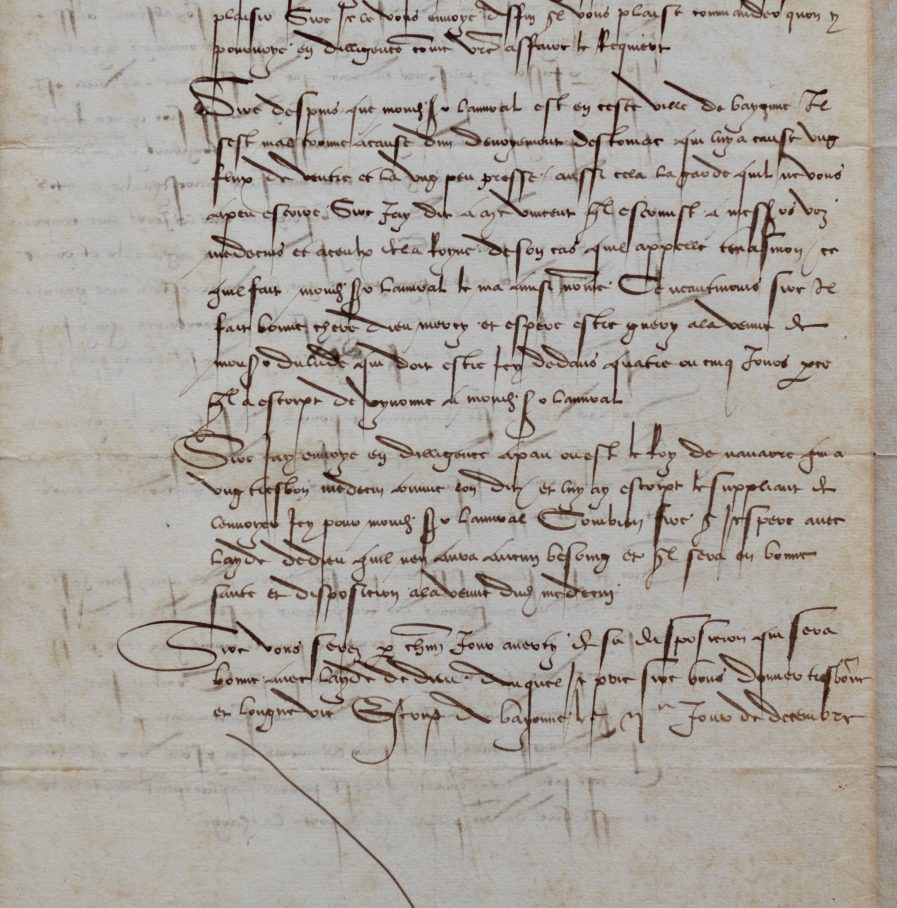 plaisir Sire Je le vous envoye affin quil vous plaise commander quon y
pourvoye en dilligence comme vre affaire le Requiert
Sire despuis que monsr l admiral est en ceste ville de bayonne Il
sest mal trouve a cause dun devoyement destomac qui luy a cause ung
flux de ventre et la ung peu presse aussi cela la garde quil ne vous
a peu escrire Sire Jay dit a me vincent quil escrivist a messrs voz
medecins et a ceulx de la Royne de son cas quil appelle ce
quil fait monsr l admiral le ma ainsi nomme Et neantmoins sire Il
fait bonne chere dieu mercy et espere estre guery a la venue de
monsr dulude qui doit estre Icy dedans quatre ou cinq Jours
quil a escript de a monsr l admiral
Sire Jay envoye en dilligence a pau ou est le Roy de navarre qui a
ung tresbon medecin comme lon dit et luy ay escript le suppliant de
lenvoyer Icy pour monsr l admiral Combien sire que Jespere avec
layde de dieu quil nen aura aucun besoing et quil sera en bonne
sante et disposition a la venue dud medecin
Sire vous serez par chun Jour averty de sa disposition qui sera
bonne avec layde de dieu Auquel Je prie sire vous donner tresbonne
et longue vie Escript a bayonne le Jour de decembre